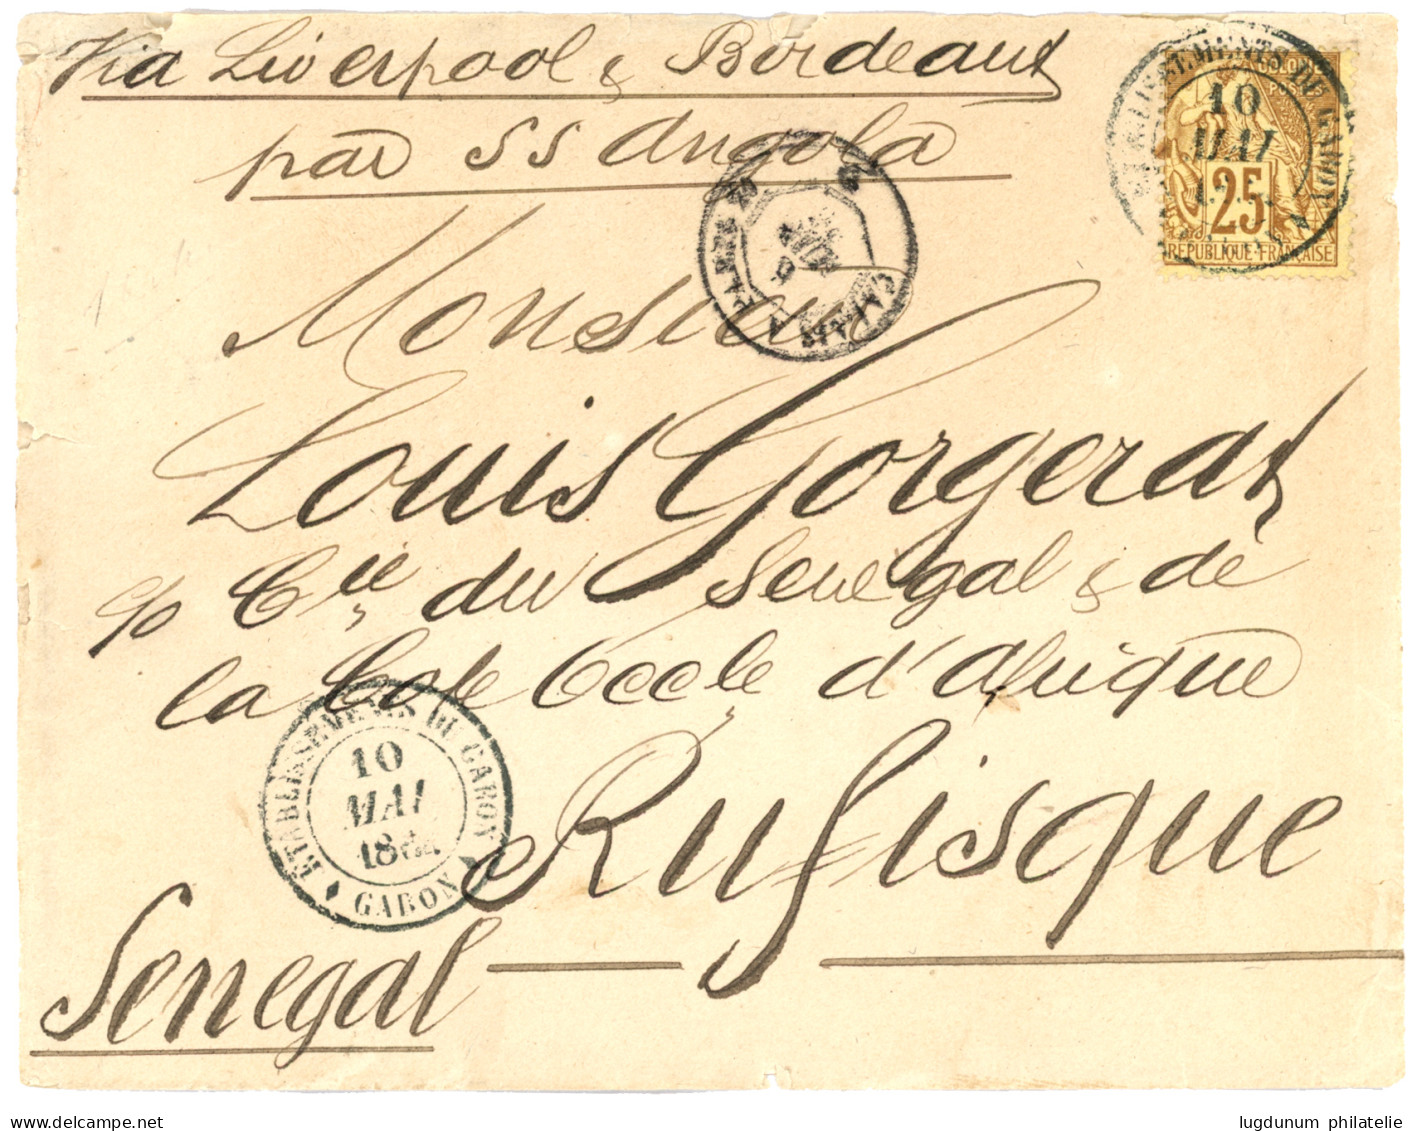 Via Liverpool & Bordeaux
par SS Angola
ETABLISSEMENTS DU GABON
10
MAI
COLONIES
POSTES
25
REPUBLIQUE FRANÇAISE
CALAIS A PARIS
Monsieur
Louis Gorgerat
c/o Cie du Senegal & de
la Cote Occle d'Afrique
Rufisque
ETABLISSEMENTS DU GABON
10
MAI
GABON
Senegal
www.delcampe.net
lugdunum philatelie